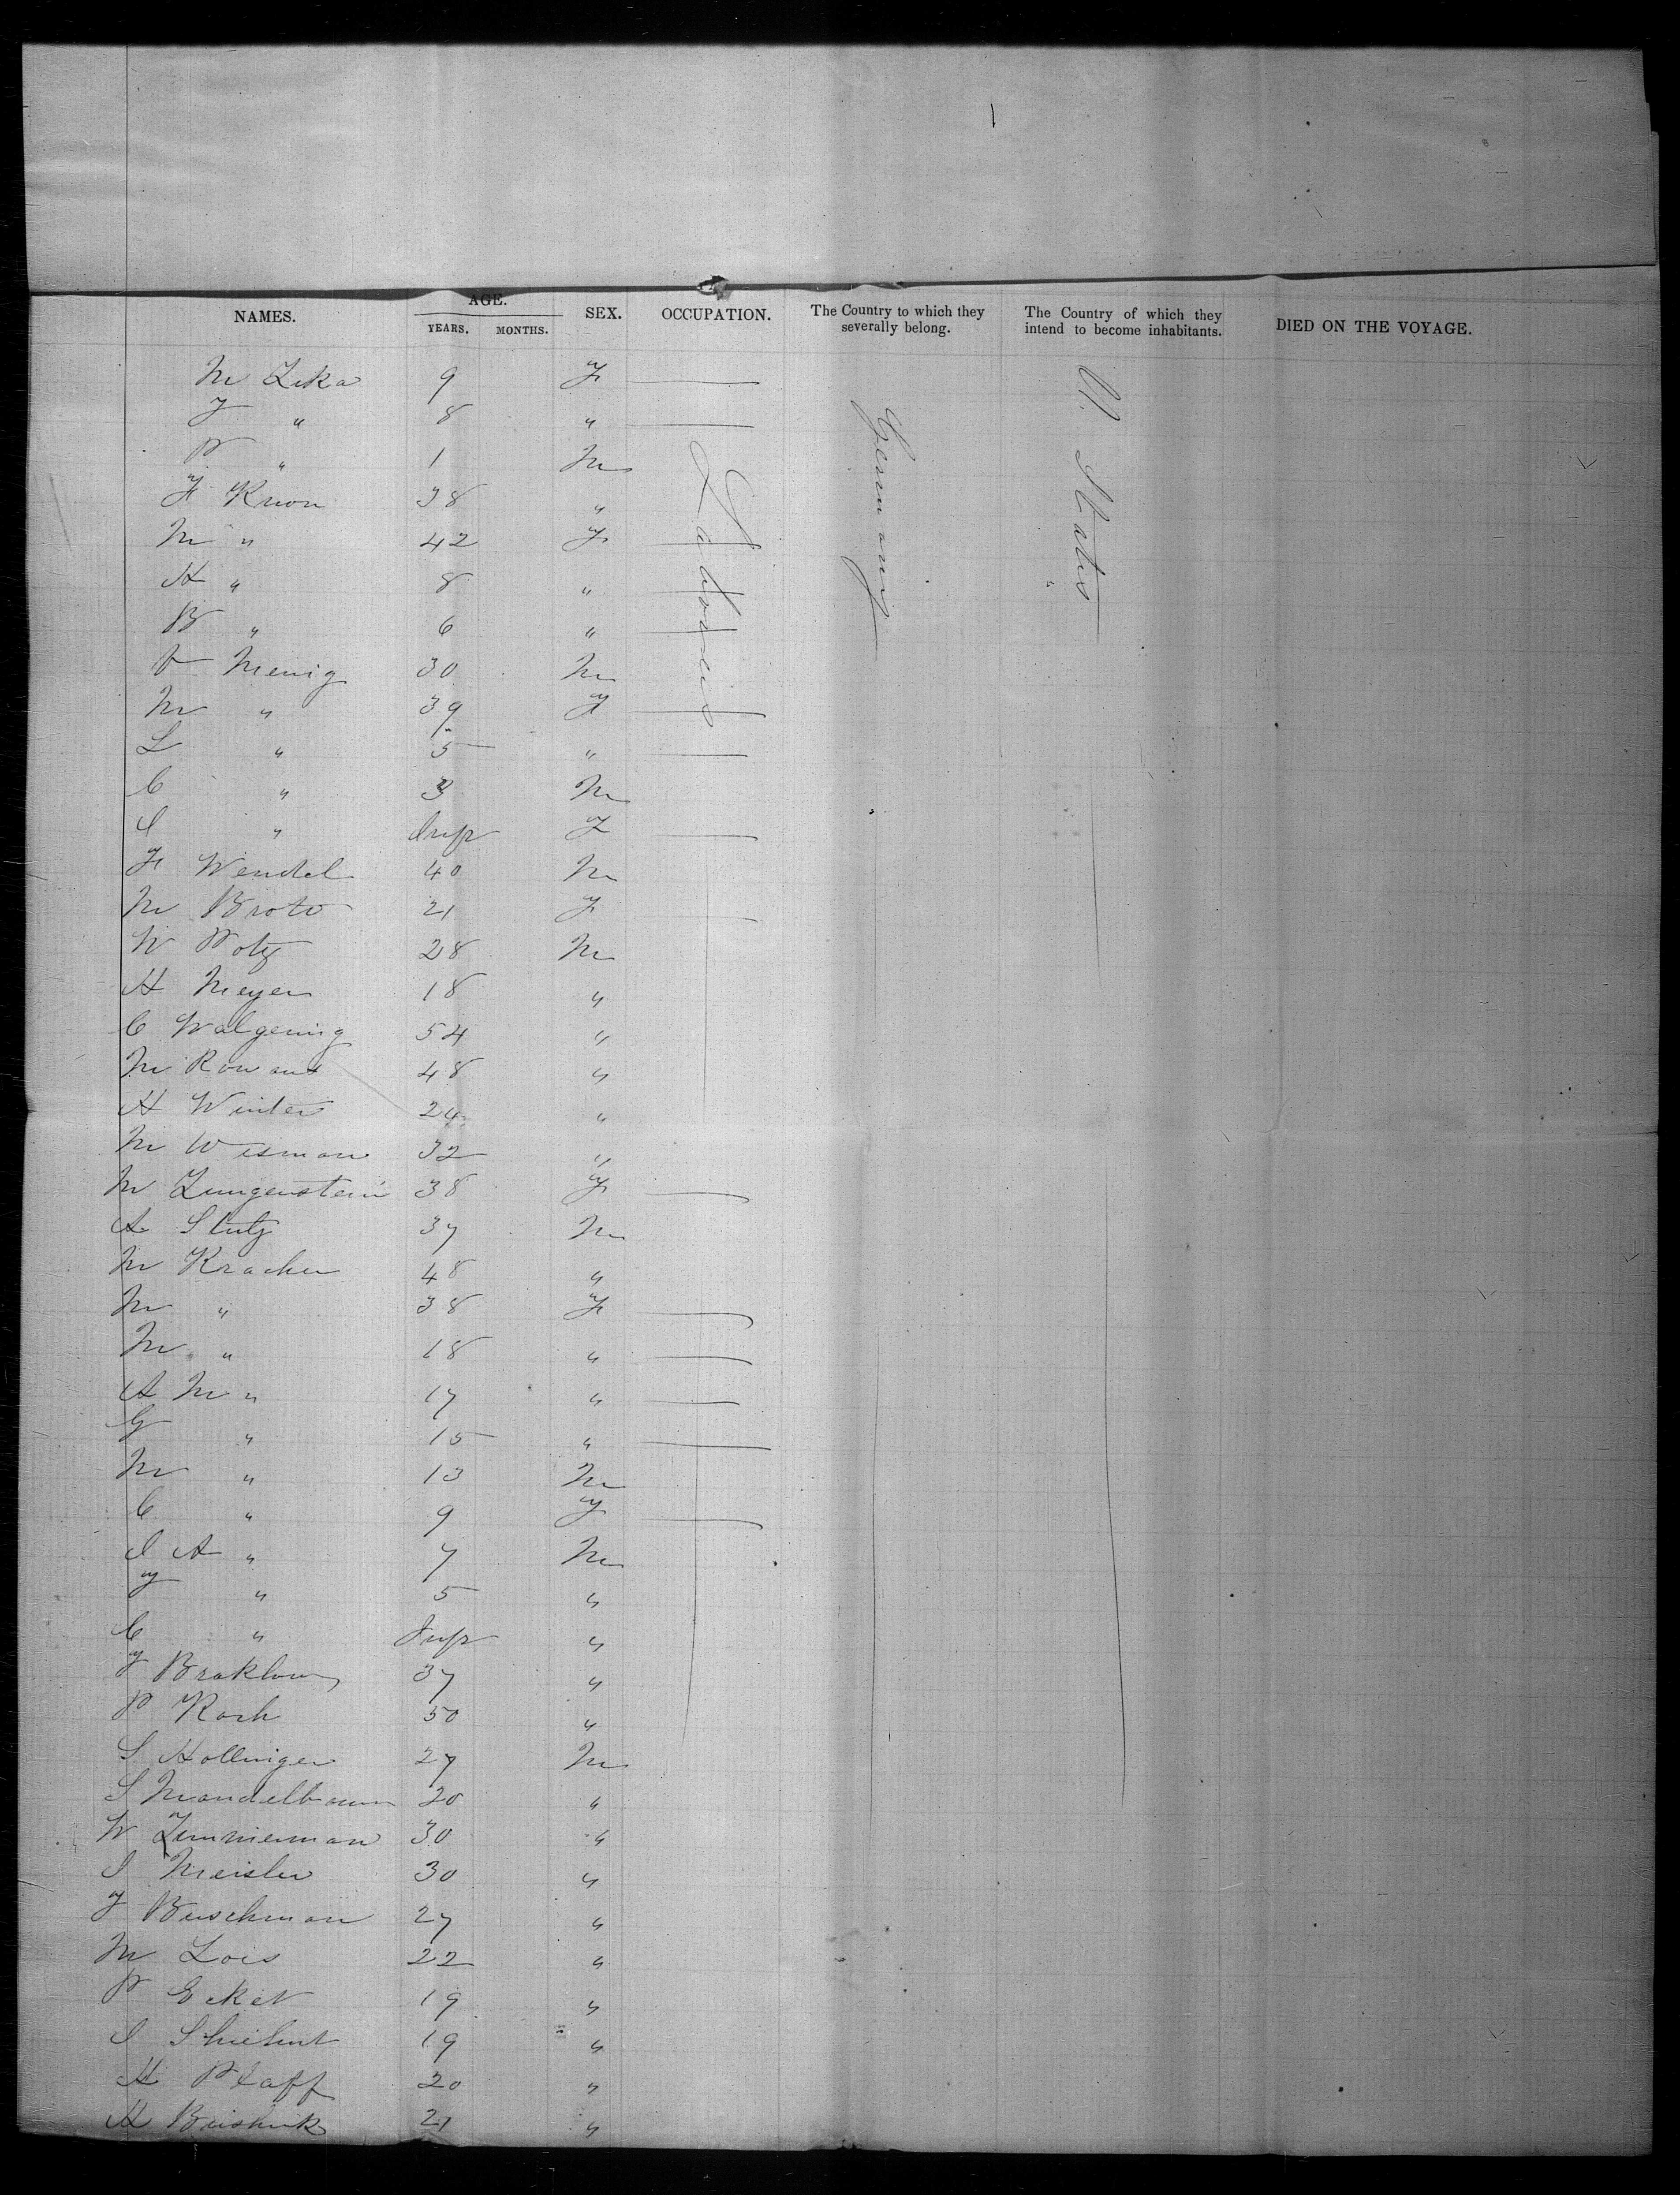 NAMES. AGE. YEARS. MONTHS. SEX. OCCUPATION. The Country to which they severally belong. The Country of which they intend to become inhabitants. DIED ON THE VOYAGE.
M Zika 9 F Laborers Germany U. States
J " 8 "
P " 1 M
F Knon 38 "
M " 42 F
A " 8 "
B " 6 "
V Menig 30 M
M " 39 F
L " 5 "
C " 3 M
S " Inft F
F Wendel 40 M
M Broto 21 F
W Potz 28 M
H Meyer 18 "
C Walgening 54 "
M Rowans 48 "
H Winter 24 "
M Wisman 32 "
M Zungenstein 38 F
A Stutz 37 M
M Kracher 48 "
M " 38 F
M " 18 "
A M " 17 "
G " 15 "
M " 13 M
C " 9 F
J A " 7 M
J " 5 "
C " Inft "
J Braklow 37 "
P Koch 50 "
S Hollinger 27 M
S Mandelbaum 20 "
W Zimmerman 30 "
J Meisler 30 "
J Buschman 27 "
M Lois 22 "
P Eckel 19 "
J 19 "
H Pfaff 20 "
H 21 "